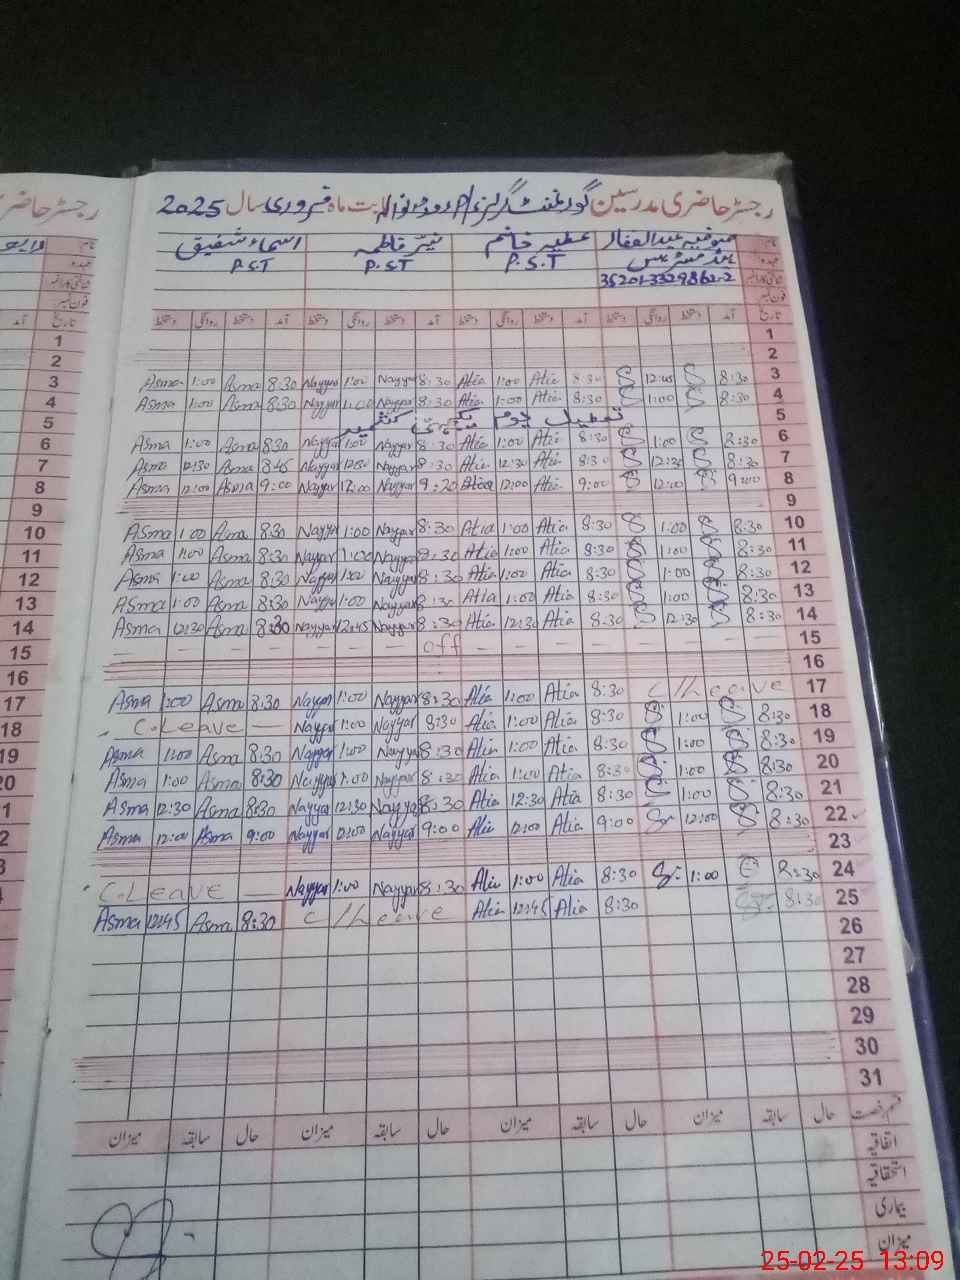 رجسٹر حاضری مدرسین گورنمنٹ گرلز بابت ماہ فروری سال 2025
نام صوفیہ عبدالغفار عطیہ نیئر فاطمہ اسماء شفیق
عہدہ ہیڈ مسٹریس P.S.T P.S.T P.S.T
35201-3329862-2
فون نمبر
تاریخ آمد دستخط روانگی دستخط آمد دستخط روانگی دستخط آمد دستخط روانگی دستخط آمد دستخط روانگی دستخط
1
2
3 8:30 S S 8:30 Atia 1:00 Atia 8:30 Nayyar 1:00 Nayyar 8:30 Asma 1:00 Asma
4 8:30 S 1:00 S 8:30 Atia 1:00 Atia 8:30 Nayyar 1:00 Nayyar 8:30 Asma 1:00 Asma
5 تعطیل یوم یکجہتی کشمیر
6 8:30 S 1:00 S 8:30 Atia 1:00 Atia 8:30 Nayyar 1:00 Nayyar 8:30 Asma 1:00 Asma
7 8:30 S 12:30 S 8:30 Atia 12:30 Atia 8:30 Nayyar 12:30 Nayyar 8:45 Asma 12:30 Asma
8 9:00 S 12:00 S 9:00 Atia 12:00 Atia 9:20 Nayyar 12:00 Nayyar 9:00 Asma 12:00 Asma
9
10 8:30 S 1:00 S 8:30 Atia 1:00 Atia 8:30 Nayyar 1:00 Nayyar 8:30 Asma 1:00 Asma
11 8:30 S 1:00 S 8:30 Atia 1:00 Atia 8:30 Nayyar 1:00 Nayyar 8:30 Asma 1:00 Asma
12 8:30 S 1:00 S 8:30 Atia 1:00 Atia 8:30 Nayyar 1:00 Nayyar 8:30 Asma 1:00 Asma
13 8:30 S 1:00 S 8:30 Atia 1:00 Atia 8:30 Nayyar 1:00 Nayyar 8:30 Asma 1:00 Asma
14 8:30 S 12:30 S 8:30 Atia 12:30 Atia 8:30 Nayyar 12:45 Nayyar 8:30 Asma 12:30 Asma
15 off
16
17 C/Leave 8:30 Atia 1:00 Atia 8:30 Nayyar 1:00 Nayyar 8:30 Asma 1:00 Asma
18 8:30 S 1:00 S 8:30 Atia 1:00 Atia 8:30 Nayyar 1:00 Nayyar C.Leave
19 8:30 S 1:00 S 8:30 Atia 1:00 Atia 8:30 Nayyar 1:00 Nayyar 8:30 Asma 1:00 Asma
20 8:30 S 1:00 S 8:30 Atia 1:00 Atia 8:30 Nayyar 1:00 Nayyar 8:30 Asma 1:00 Asma
21 8:30 S 1:00 S 8:30 Atia 12:30 Atia 8:30 Nayyar 12:30 Nayyar 8:30 Asma 12:30 Asma
22 8:30 S 12:00 S 9:00 Atia 12:00 Atia 9:00 Nayyar 12:00 Nayyar 9:00 Asma 12:00 Asma
23
24 8:30 1:00 S 8:30 Atia 1:00 Atia 8:30 Nayyar 1:00 Nayyar C.Leave
25 8:30 8:30 Atia 12:45 Atia C/Leave 8:30 Asma 12:45 Asma
26
27
28
29
30
31
قسم رخصت حال سابقہ میزان حال سابقہ میزان حال سابقہ میزان حال سابقہ میزان
اتفاقیہ
استحقاقیہ
بیماری
میزان
25-02-25 13:09